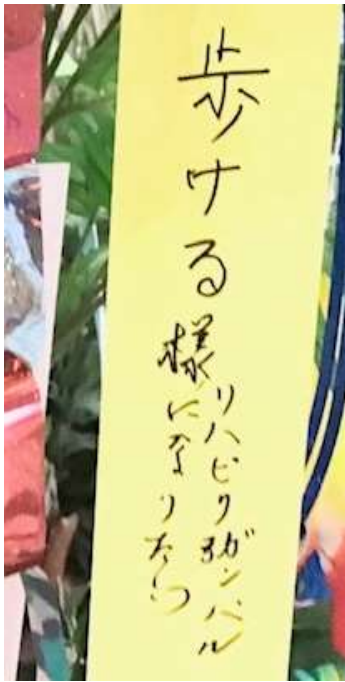 歩ける様になりたい
リハビリガンバル